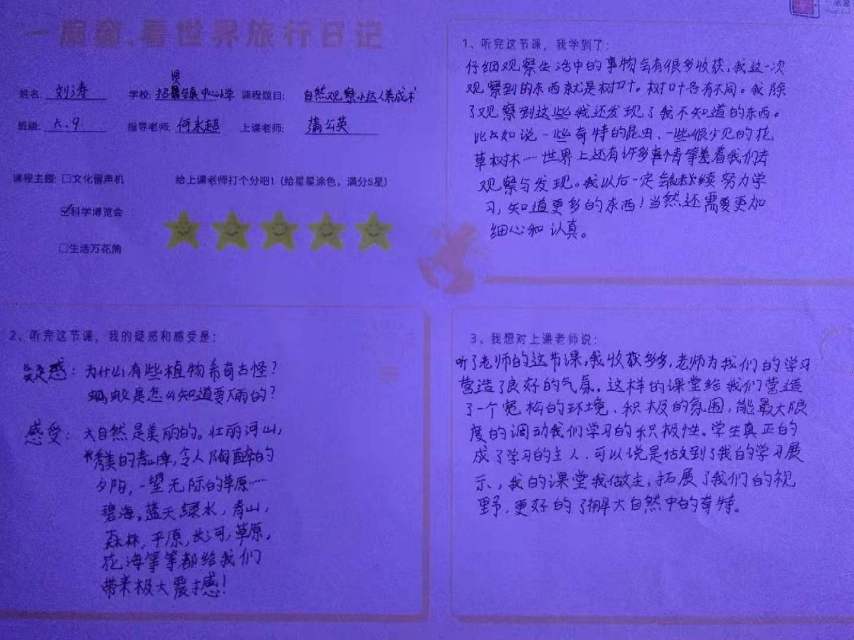 一扇窗,看世界旅行日记
姓名: 刘涛 学校: 招贤镇中心小学 课程题目: 自然观察小达人养成术
班级: 六.9 指导老师: 何永超 上课老师: 蒲公英
课程主题: □文化留声机 给上课老师打个分吧!(给星星涂色,满分5星)
☑科学博览会
□生活万花筒
1、听完这节课,我学到了:
仔细观察生活中的事物会有很多收获,我这一次
观察到的东西就是树叶。树叶各有不同。我除
了观察到这些我还发现了我不知道的东西。
比如说一些奇特的昆虫、一些很少见的花
草树木…世界上还有许多事情等着我们去
观察与发现。我以后一定会继续努力学
习,知道更多的东西!当然,还需要更加
细心和认真。
2、听完这节课,我的疑惑和感受是:
疑惑:为什么有些植物希奇古怪?
蚂蚁是怎么知道要下雨的?
感受:大自然是美丽的。壮丽河山,
秀美的青山,令人陶醉的
夕阳,一望无际的草原…
碧海,蓝天,绿水,青山,
森林,平原,长河,草原,
花海等等都给我们
带来极大震撼!
3、我想对上课老师说:
听了老师的这节课,我收获多多,老师为我们的学习
营造了良好的气氛。这样的课堂给我们营造
了一个宽松的环境、积极的氛围,能最大限
度的调动我们学习的积极性。学生真正的
成了学习的主人,可以说是做到了我的学习展
示,我的课堂我做主,拓展了我们的视
野,更好的了解大自然中的奇特。